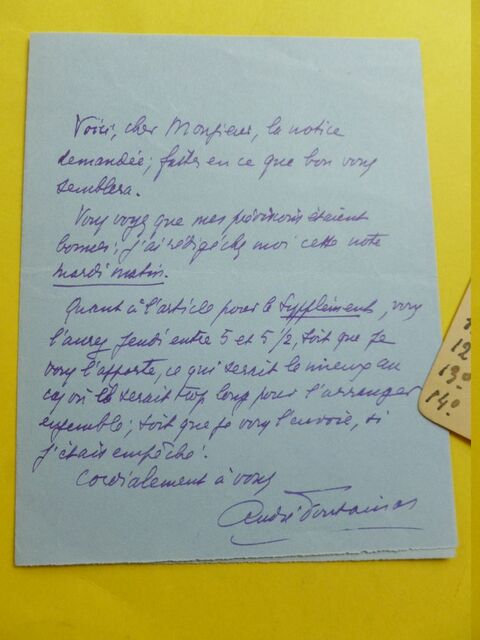 Voici, cher Monsieur, la notice
demandée; faites en ce que bon vous
semblera.
Vous voyez que mes prévisions étaient
bonnes; j'ai rédigé chez moi cette note
mardi matin.
Quant à l'article pour le Supplément, vous
l'aurez Jeudi entre 5 et 5 1/2, soit que je
vous l'apporte, ce qui serait le mieux au
cas où il serait trop long pour l'arranger
ensemble; soit que je vous l'envoie, si
j'étais empêché.
Cordialement à vous
André Fontainas
12
13°
14°